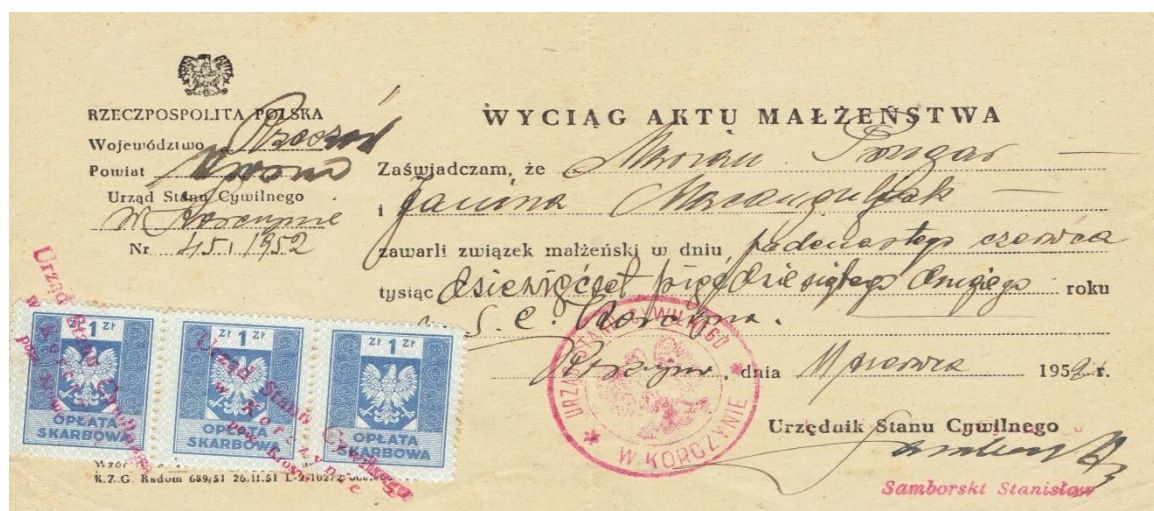 RZECZPOSPOLITA POLSKA
Województwo Rzeszów
Powiat Krosno
Urząd Stanu Cywilnego
w Korczynie
Nr 45, 1952
WYCIĄG AKTU MAŁŻEŃSTWA
Zaświadczam, że Marian
i Janina
zawarli związek małżeński w dniu jedenastego czerwca
tysiąc dziewięćset pięćdziesiątego drugiego roku
w S. C. Korczyna.
Korczyna, dnia 11 czerwca 1952 r.
Urzędnik Stanu Cywilnego
Samborski Stanisław
URZĄD STANU CYWILNEGO
W KORCZYNIE
Urząd Stanu Cywilnego
w Korczynie
pow. Krosno
Urząd Stanu Cywilnego
w Korczynie
pow. Krosno
ZŁ 1 ZŁ
OPŁATA
SKARBOWA
ZŁ 1 ZŁ
OPŁATA
SKARBOWA
ZŁ 1 ZŁ
OPŁATA
SKARBOWA
Wzór
K.Z.G. Radom 689/51 26.11.51